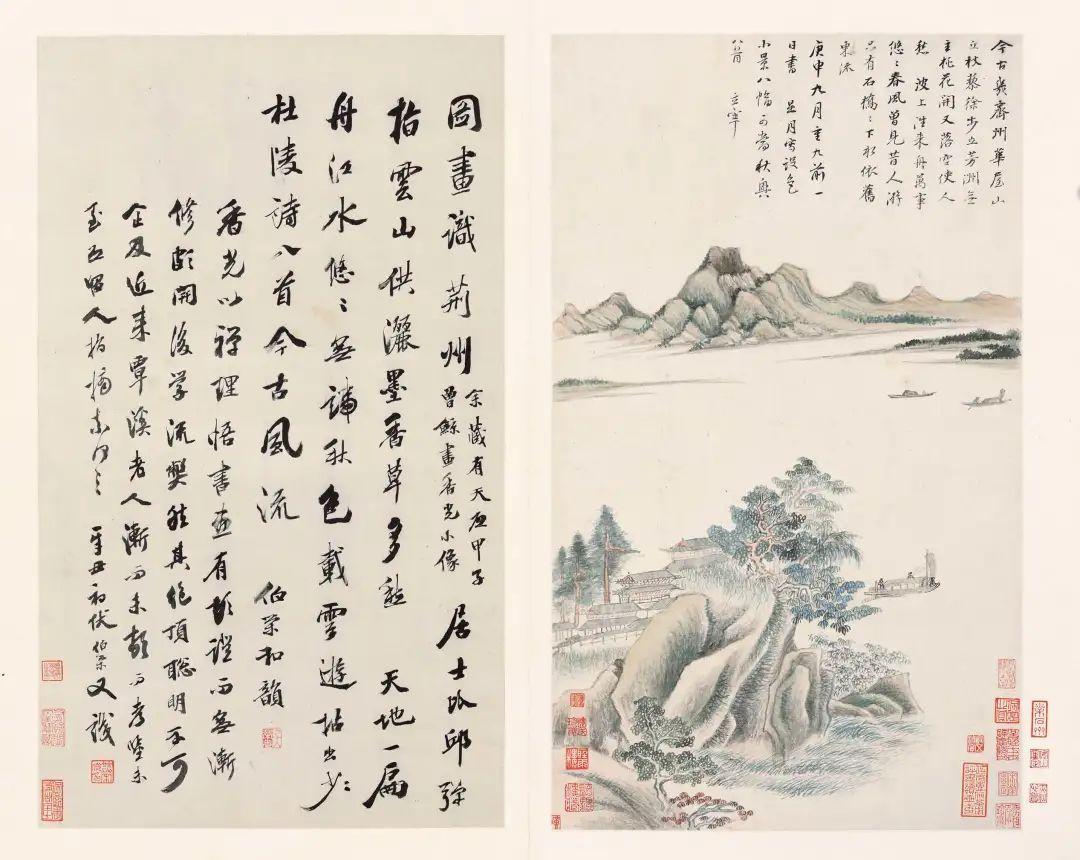 今古幾齊州華屋山
丘杖藜徐步立芳洲無
主桃花開又落空使人
愁 波上往來舟萬事
悠〻春風曾見昔人游
只有石橋〻下水依舊
東流
庚申九月重九前一
日書 是月寫設色
小景八幅可當秋興
八首 玄宰
圖畫識荊州 余藏有天啟甲子
曾鯨畫香光小像 居士比邱弥
指雲山供灑墨香草多愁 天地一扁
舟江水悠〻無諸秋色載雲遊拈出少〻
杜陵詩八首今古風流 伯榮和韻
香光以禪理悟書畫有頓證而無漸
修頗開後學流弊然其絕頂聰明不可
企及近來覃溪老人漸而未頓而
人指摘 辛丑初伏伯榮又識